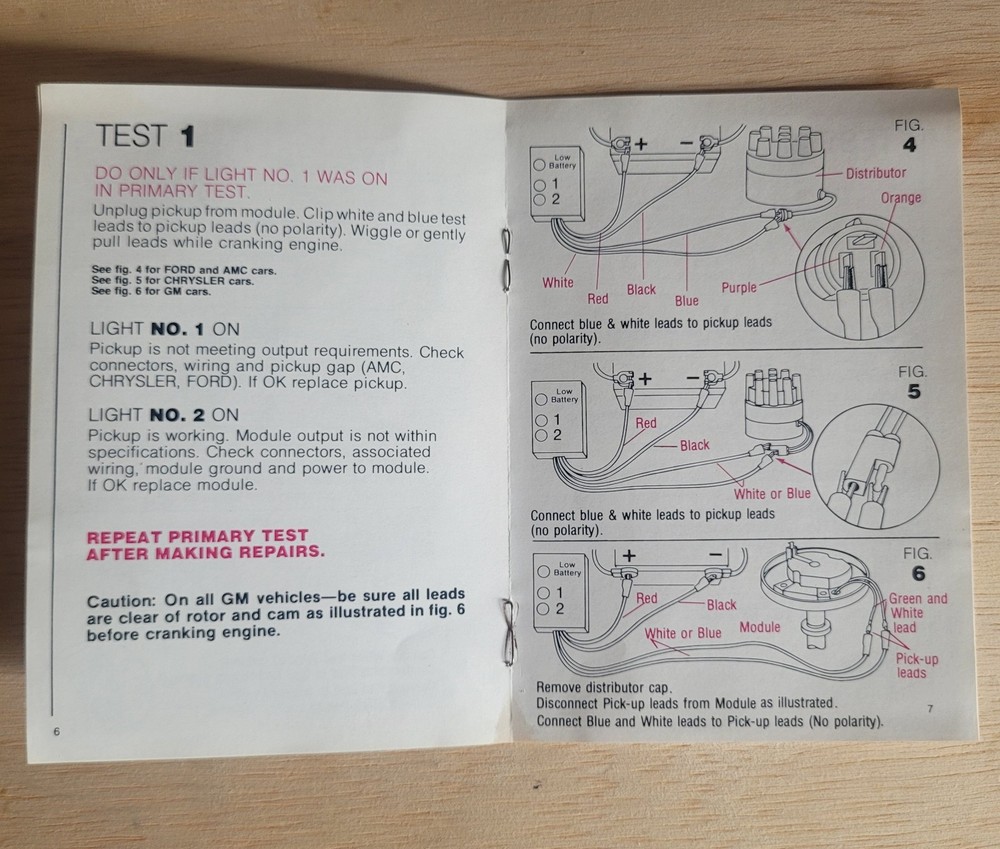 TEST 1
DO ONLY IF LIGHT NO. 1 WAS ON
IN PRIMARY TEST.
Unplug pickup from module. Clip white and blue test
leads to pickup leads (no polarity). Wiggle or gently
pull leads while cranking engine.
See fig. 4 for FORD and AMC cars.
See fig. 5 for CHRYSLER cars.
See fig. 6 for GM cars.
LIGHT NO. 1 ON
Pickup is not meeting output requirements. Check
connectors, wiring and pickup gap (AMC,
CHRYSLER, FORD). If OK replace pickup.
LIGHT NO. 2 ON
Pickup is working. Module output is not within
specifications. Check connectors, associated
wiring, module ground and power to module.
If OK replace module.
REPEAT PRIMARY TEST
AFTER MAKING REPAIRS.
Caution: On all GM vehicles—be sure all leads
are clear of rotor and cam as illustrated in fig. 6
before cranking engine.
6
FIG.
4
Low
Battery
1
2
+ −
Distributor
Orange
Purple
White
Red
Black
Blue
Connect blue & white leads to pickup leads
(no polarity).
FIG.
5
Low
Battery
1
2
+ −
Red
Black
White or Blue
Connect blue & white leads to pickup leads
(no polarity).
FIG.
6
Low
Battery
1
2
+ −
Red
Black
White or Blue
Module
Green and
White
lead
Pick-up
leads
Remove distributor cap.
Disconnect Pick-up leads from Module as illustrated.
Connect Blue and White leads to Pick-up leads (No polarity).
7